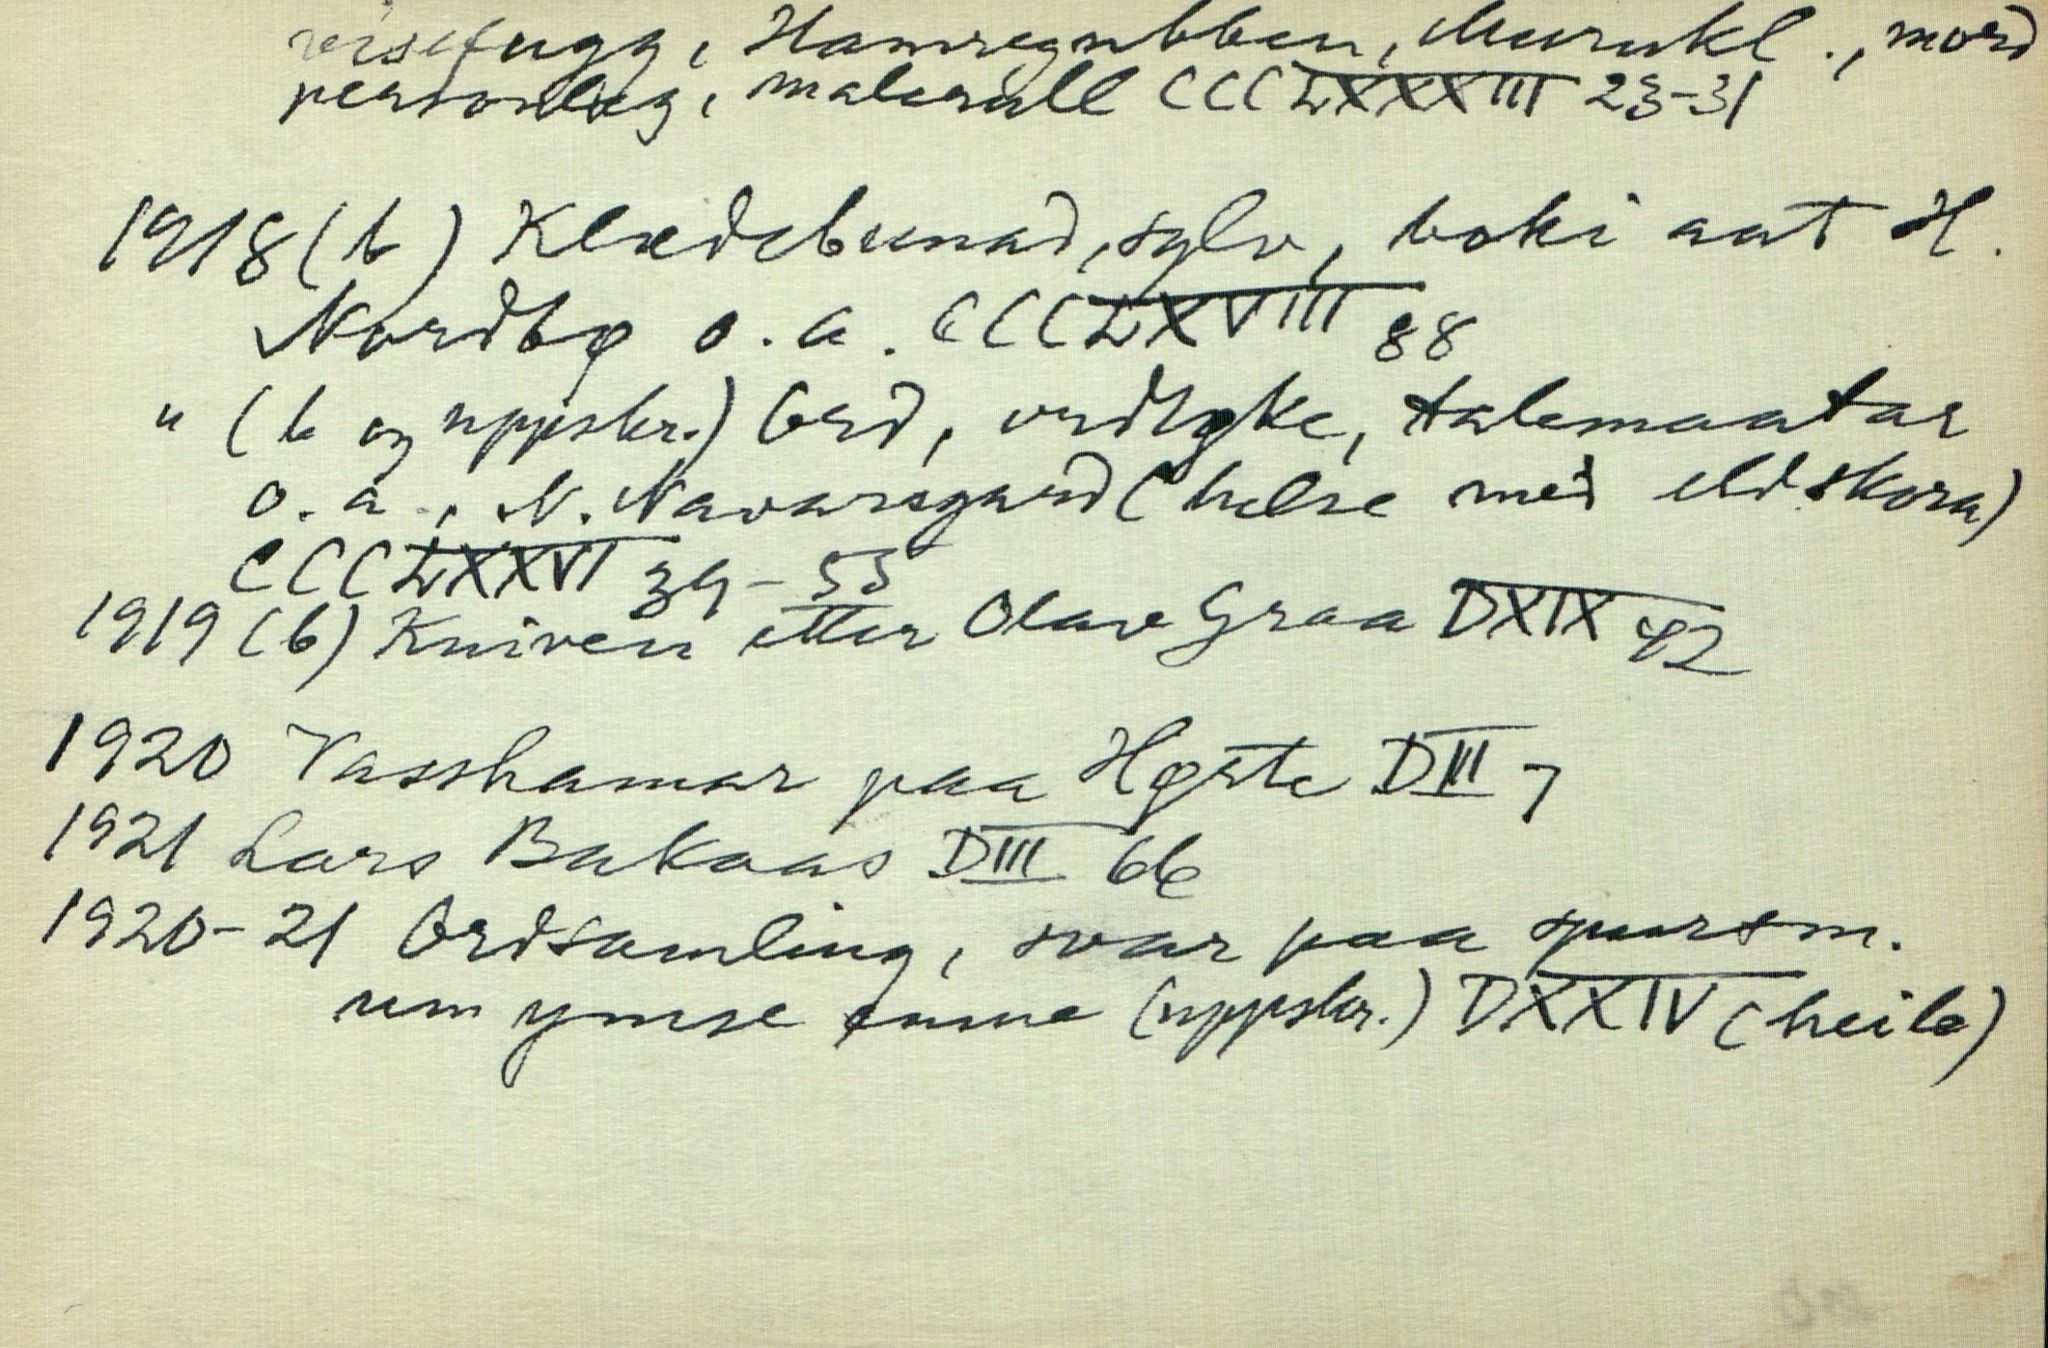 visefugg, Hamregubben, Murukl., mord
personleg, maleriall CCCLXXXIII 23-31
1918 (b) Klædebunad, sylv, boki aat H.
Nordbø o.a. CCCLXVIII 88
" (b og uppskr.) Ord, ordløke, talemaatar
o.a., N. Navarsgard (helse med eldskora)
CCCLXXVI 39-55
1919 (b) Kniven etter Olav Graa DXIX 42
1920 Vasshamar paa Høgste DIII 7
1921 Lars Bakaas DIII 66
1920-21 Ordsamling, svar paa spursm.
um ymse emne (uppskr.) DXXIV (heile)